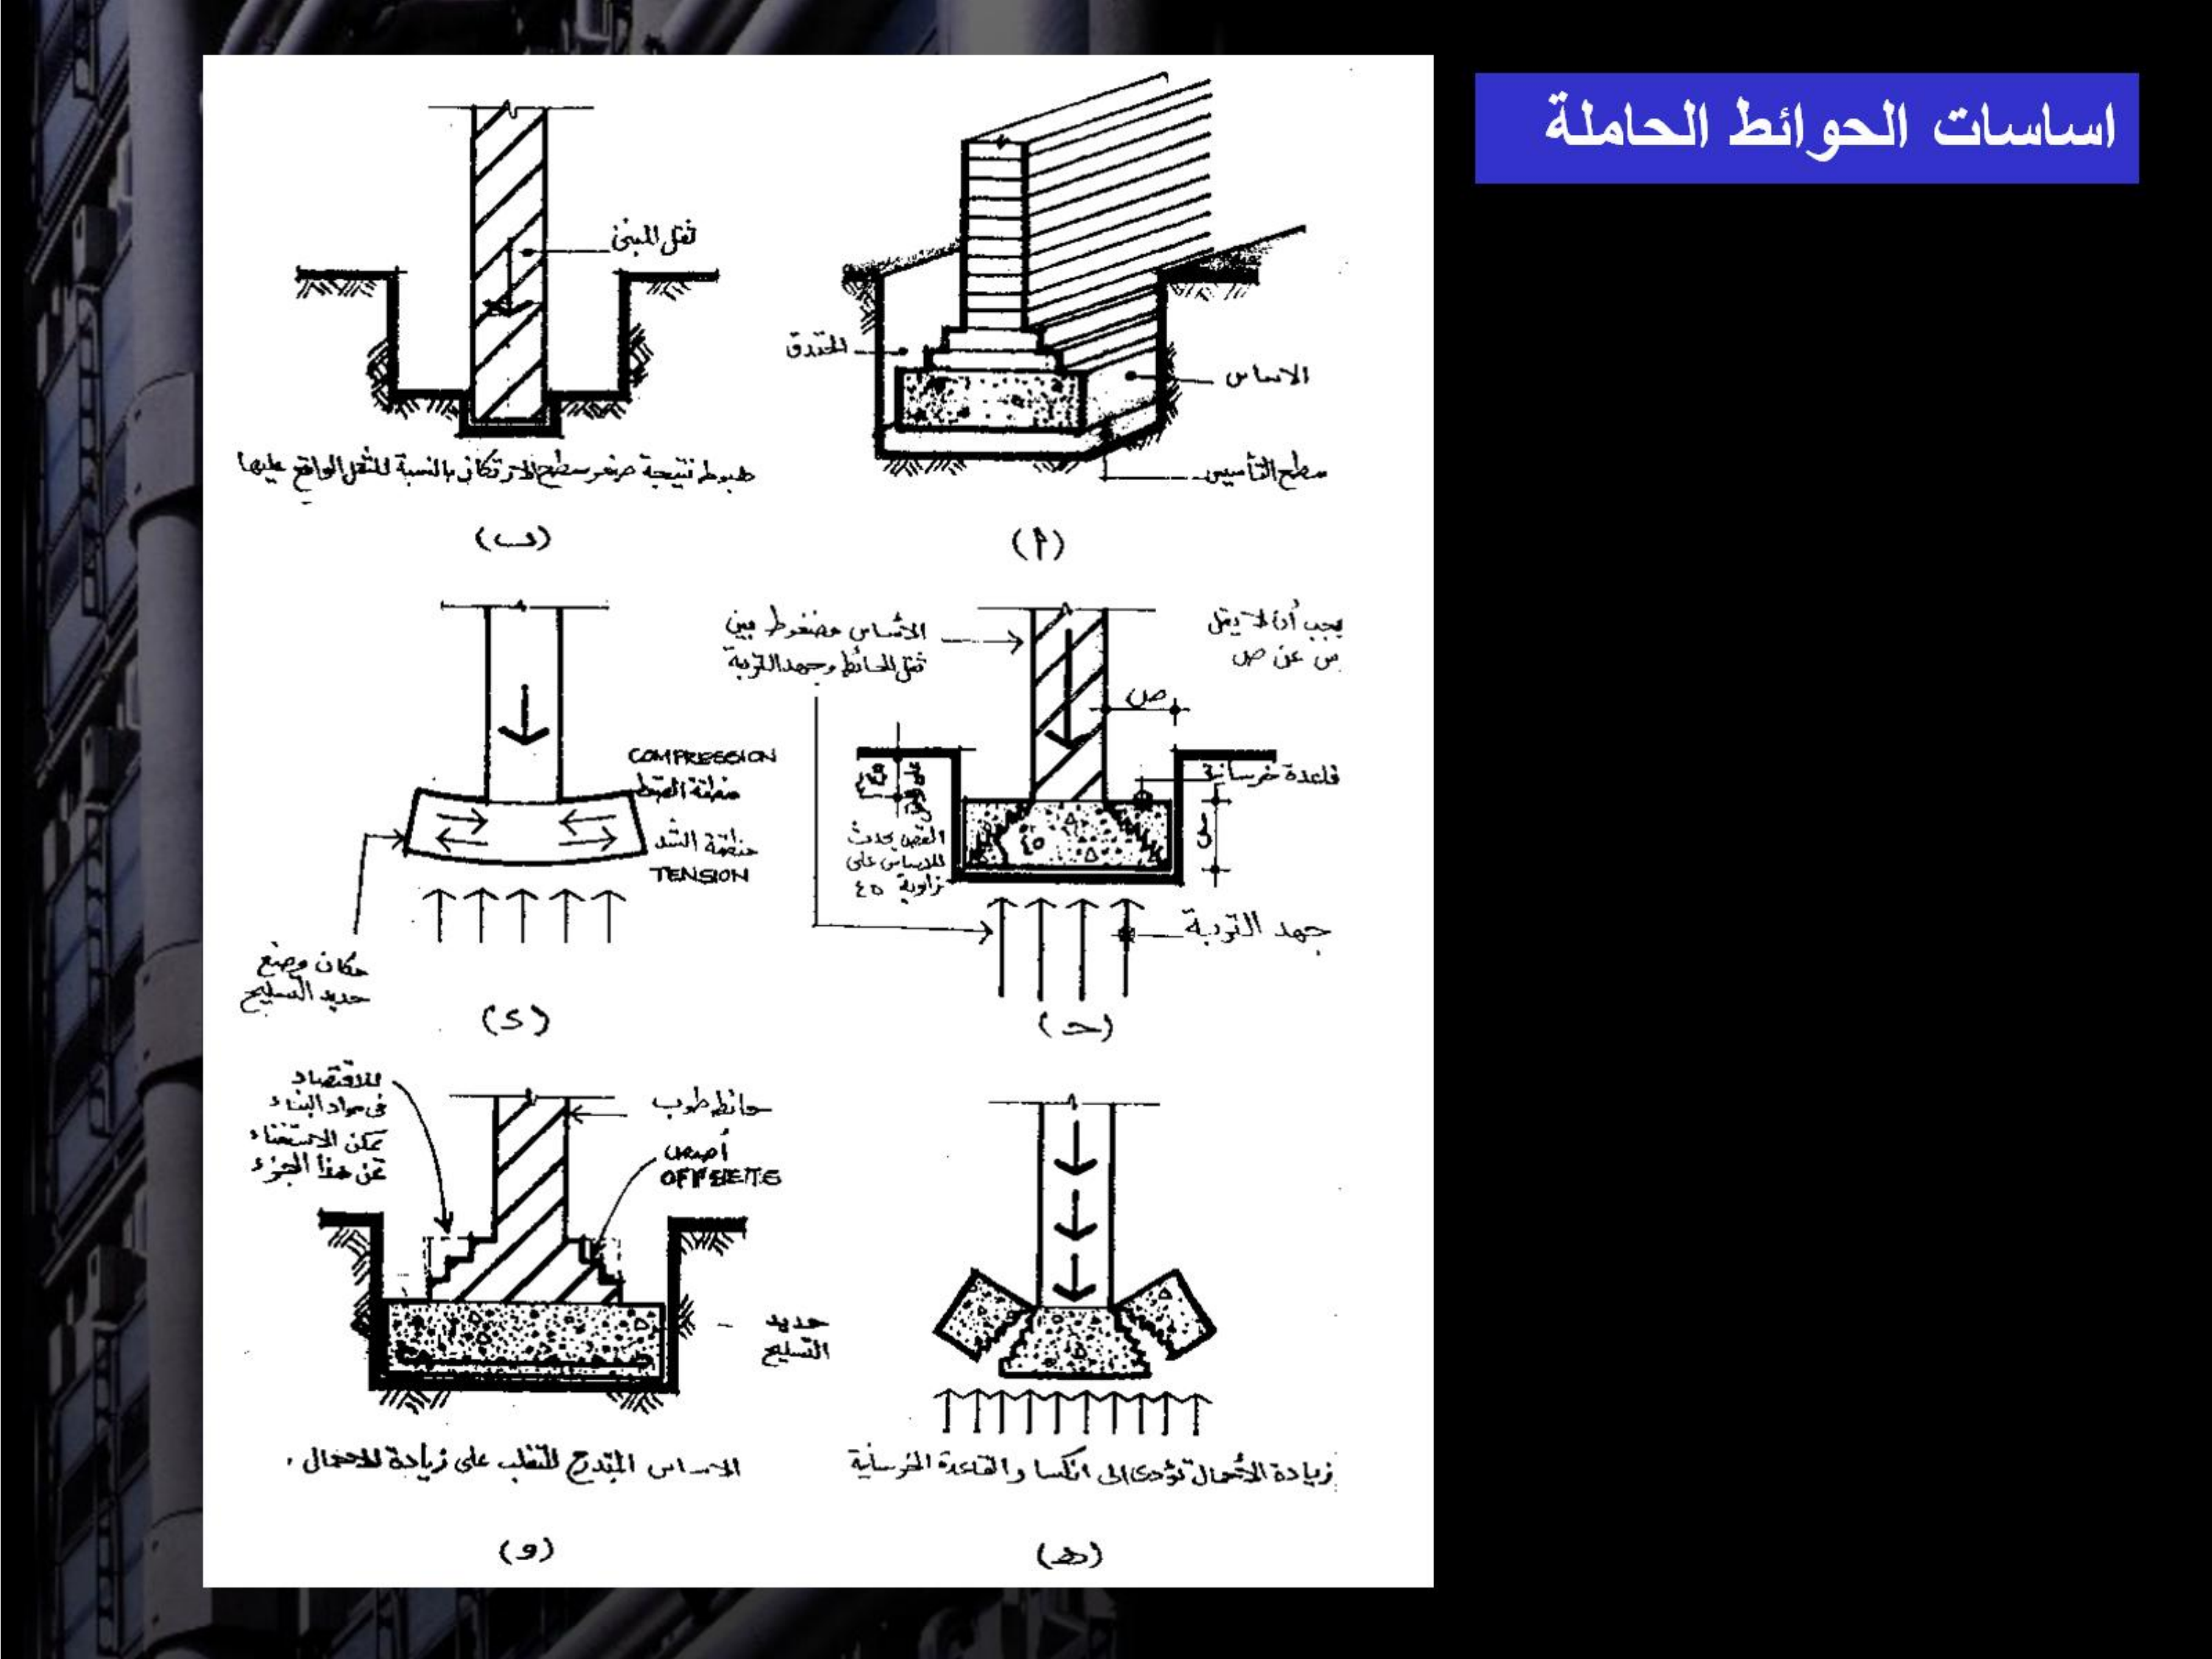 اساسات الحوائط الحاملة
الخندق
الاساس
سطح التأسيس
(أ)
ثقل المبنى
هبوط نتيجة صغر سطح الارتكاز بالنسبة للثقل الواقع عليها
(ب)
يجب أن لا يقل
س عن ص
الأساس مضغوط بين
ثقل الحائط وجهد التربة
ص
قاعدة خرسانية
س
٤٥
القص يحدث
للاساس على
زاوية ٤٥
جهد التربة
(حـ)
COMPRESSION
منطقة الضغط
منطقة الشد
TENSION
مكان وضع
حديد التسليح
(د)
زيادة الأحمال تؤدى الى انكسار القاعدة الخرسانية
(هـ)
للاقتصاد
فى مواد البناء
يمكن الاستغناء
عن هذا الجزء
حائط طوب
OFFSETS
حديد
التسليح
الاساس المتدرج للتغلب على زيادة الاحمال .
(و)